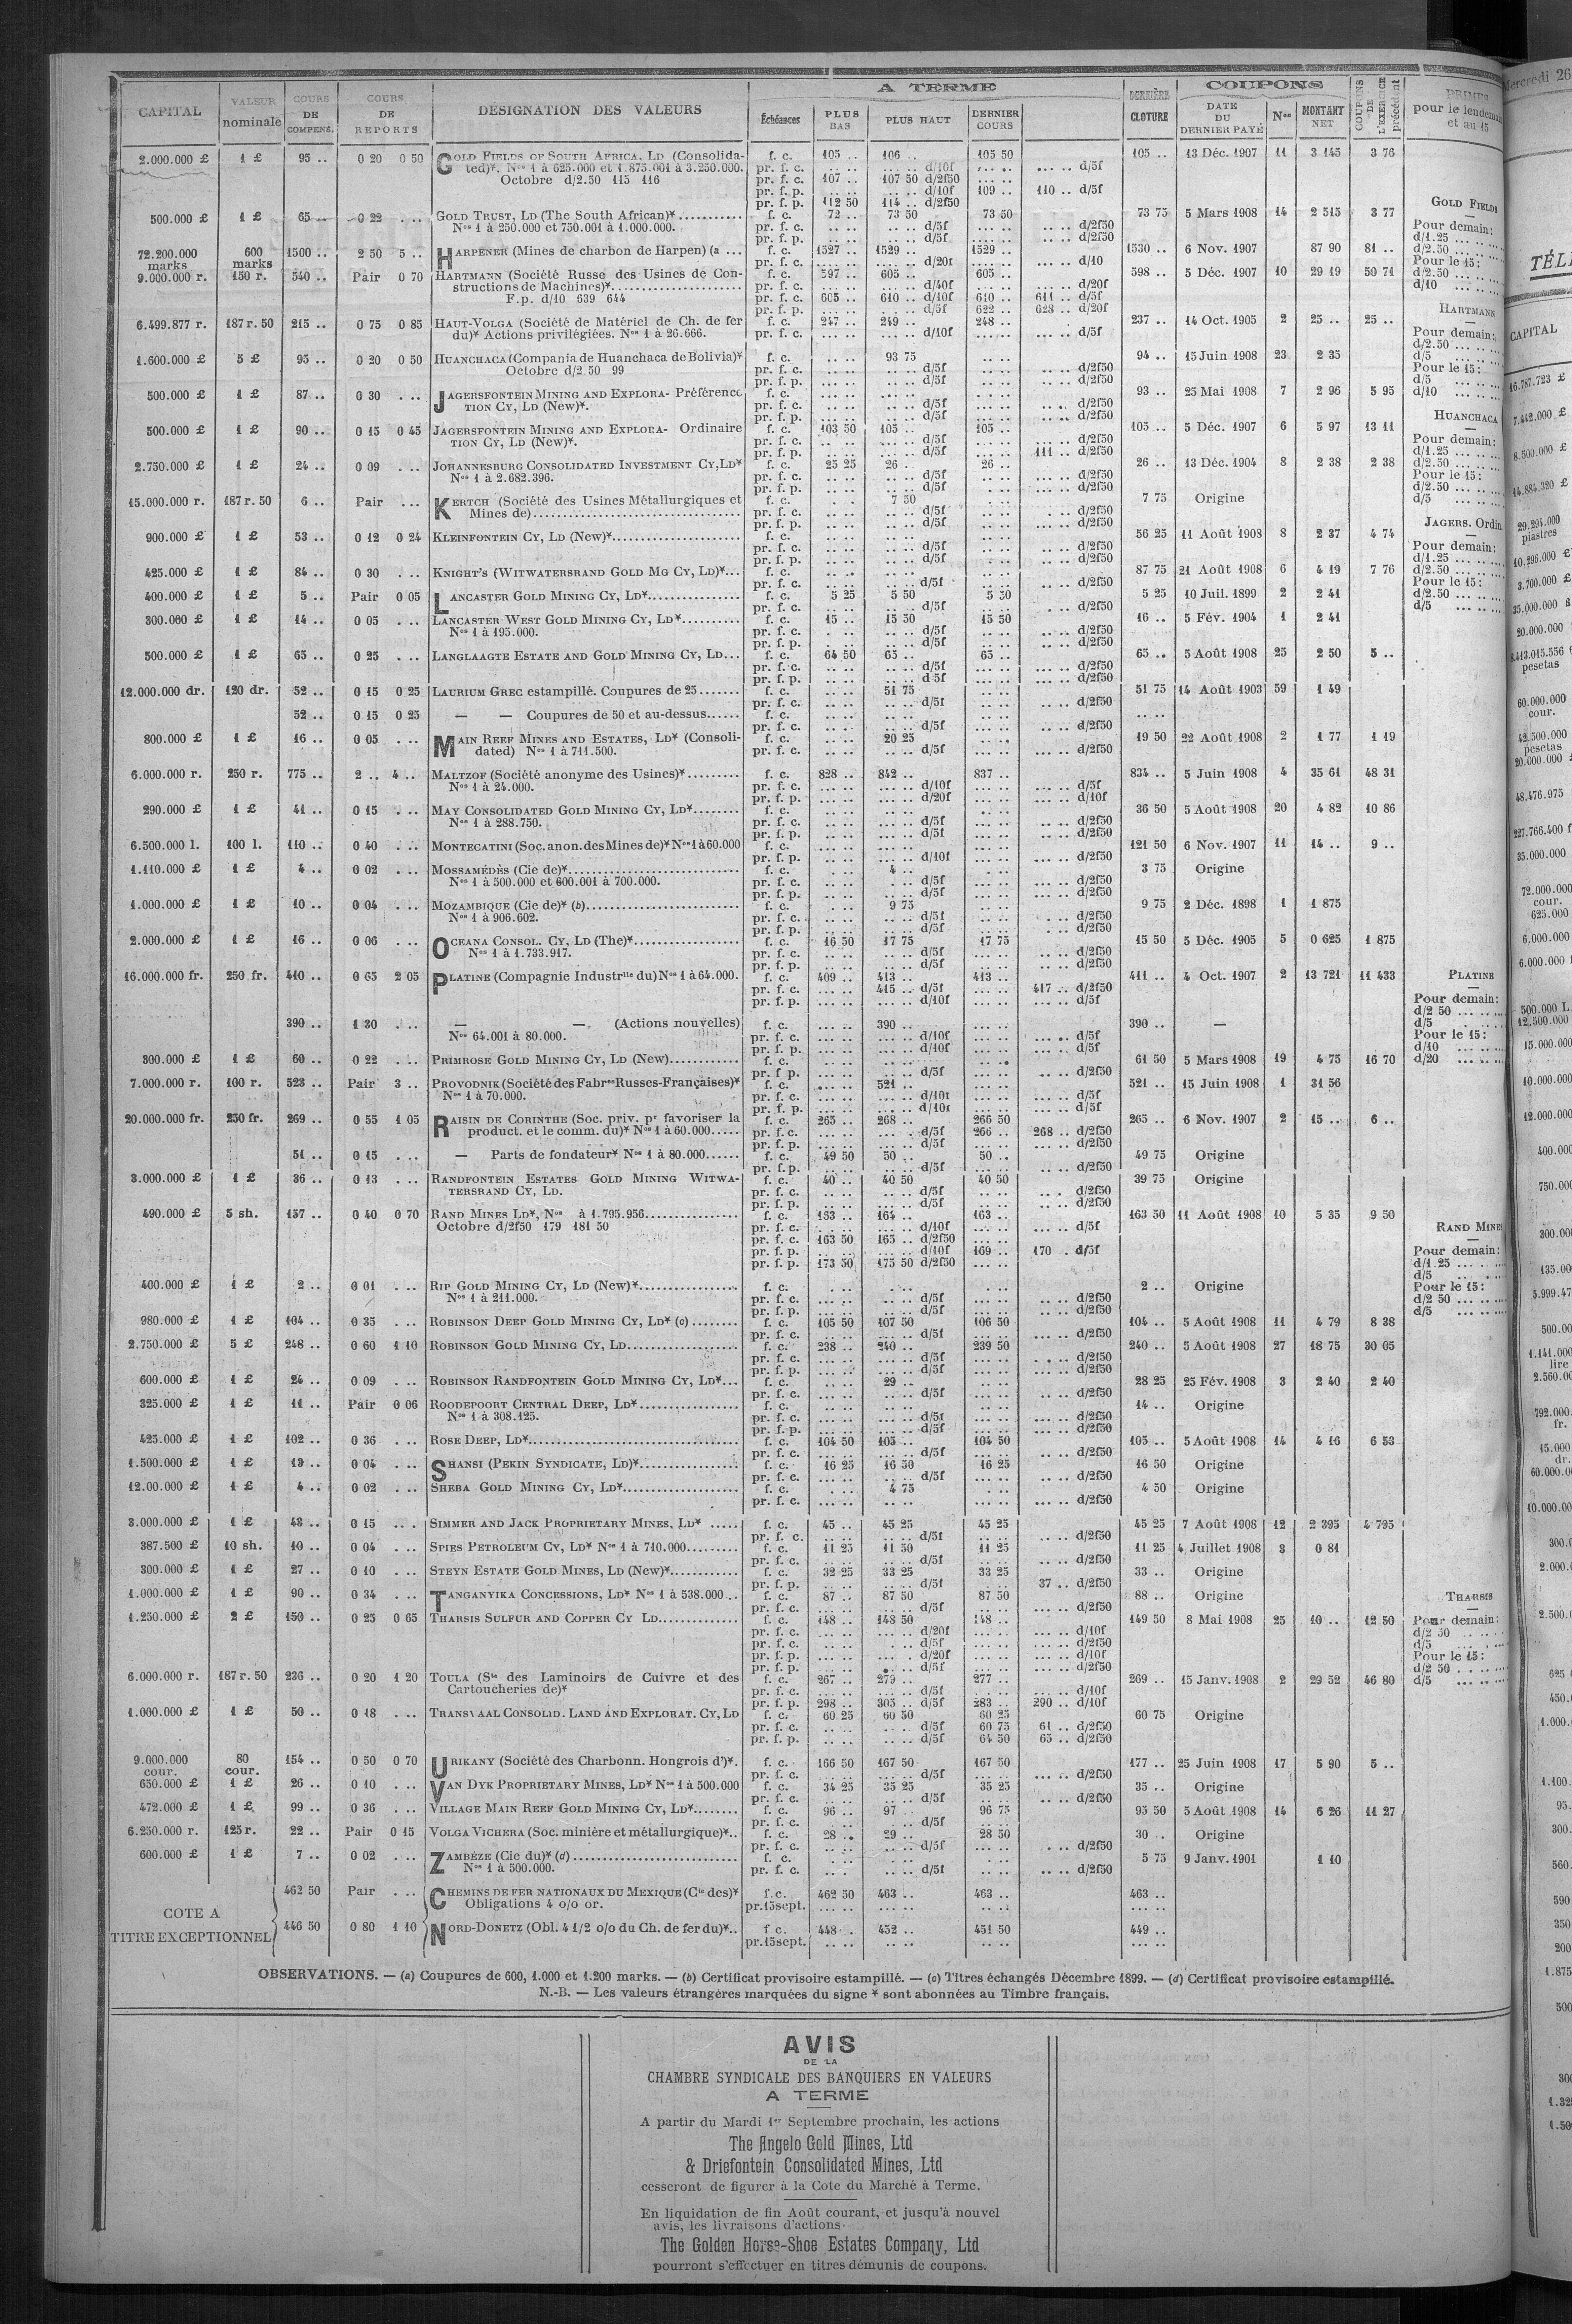 CAPITAL VALEUR nominale COURS DE COMPENS. COURS DE REPORTS DÉSIGNATION DES VALEURS A TERME Échéances PLUS BAS PLUS HAUT DERNIER COURS DERNIÈRE CLOTURE COUPONS DATE DU DERNIER PAYÉ Nos MONTANT NET COUPONS DE L'EXERCICE précédent PRIMES pour le lendemain et au 15
2.000.000 £ 1 £ 95 .. 0 20 0 50 GOLD FIELDS OF SOUTH AFRICA, LD (Consolida- f. c. 105 .. 106 .. 105 50 105 .. 13 Déc. 1907 11 3 145 3 76
ted)*. Nos 1 à 625.000 et 1.875.001 à 3.250.000. pr. f. c. .. .. .. .. d/10f .. .. .. .. d/5f
Octobre d/2.50 115 116 pr. f. c. 107 .. 107 50 d/2f50 .. ..
pr. f. p. .. .. .. .. d/10f 109 .. 110 .. d/5f
pr. f. p. 112 50 114 .. d/2f50
500.000 £ 1 £ 65 .. 0 22 . .. GOLD TRUST, LD (The South African)* f. c. 72 .. 73 50 73 50 73 75 5 Mars 1908 14 2 515 3 77
Nos 1 à 250.000 et 750.001 à 1.000.000. pr. f. c. .. .. .. .. d/5f .. .. .. .. d/2f50
pr. f. p. .. .. .. .. d/5f .. .. .. .. d/2f50
72.200.000 marks 600 marks 1500 .. 2 50 5 .. HARPENER (Mines de charbon de Harpen) (a ... f. c. 1527 .. 1529 .. 1529 .. 1530 .. 6 Nov. 1907 87 90 81 ..
pr. f. c. .. .. .. .. d/20f .. .. .. .. d/10
9.000.000 r. 150 r. 540 .. Pair 0 70 HARTMANN (Société Russe des Usines de Con- f. c. 597 .. 605 .. 605 .. 598 .. 5 Déc. 1907 10 29 19 50 71
structions de Machines)* pr. f. c. .. .. .. .. d/40f .. .. .. .. d/20f
F.p. d/10 639 644 pr. f. c. 605 .. 610 .. d/10f 610 .. 611 .. d/5f
pr. f. p. .. .. .. .. d/5f 622 .. 628 .. d/20f
6.499.877 r. 187 r. 50 215 .. 0 75 0 85 HAUT-VOLGA (Société de Matériel de Ch. de fer f. c. 247 .. 249 .. 248 .. 237 .. 14 Oct. 1905 2 25 .. 25 ..
du)* Actions privilégiées. Nos 1 à 26.666. pr. f. c. .. .. .. .. d/10f .. .. .. .. d/5f
1.600.000 £ 5 £ 95 .. 0 20 0 50 HUANCHACA (Compania de Huanchaca de Bolivia)* f. c. .. .. 93 75 .. .. 94 .. 15 Juin 1908 23 2 35
Octobre d/2 50 99 pr. f. c. .. .. .. .. d/5f .. .. .. .. d/2f50
pr. f. p. .. .. .. .. d/5f .. .. .. .. d/2f50
500.000 £ 1 £ 87 .. 0 30 . .. JAGERSFONTEIN MINING AND EXPLORA- Préférence f. c. 93 .. 25 Mai 1908 7 2 96 5 95
TION CY, LD (New)*. pr. f. c. .. .. .. .. d/5f .. .. .. .. d/2f50
pr. f. p. .. .. .. .. d/5f .. .. .. .. d/2f50
500.000 £ 1 £ 90 .. 0 15 0 45 JAGERSFONTEIN MINING AND EXPLORA- Ordinaire f. c. 103 50 105 .. 105 .. 105 .. 5 Déc. 1907 6 5 97 13 11
TION CY, LD (New)*. pr. f. c. .. .. .. .. d/5f .. .. .. .. d/2f50
pr. f. p. .. .. .. .. d/5f .. .. 111 .. d/2f50
2.750.000 £ 1 £ 24 .. 0 09 . .. JOHANNESBURG CONSOLIDATED INVESTMENT CY, LD* f. c. 25 25 26 .. 26 .. 26 .. 13 Déc. 1904 8 2 38 2 38
Nos 1 à 2.682.396. pr. f. c. .. .. .. .. d/5f .. .. .. .. d/2f50
pr. f. p. .. .. .. .. d/5f .. .. .. .. d/2f50
15.000.000 r. 187 r. 50 6 .. Pair . .. KERTCH (Société des Usines Métallurgiques et f. c. .. .. 7 50 7 75 Origine
Mines de) pr. f. c. .. .. .. .. d/5f .. .. .. .. d/2f50
pr. f. p. .. .. .. .. d/5f .. .. .. .. d/2f50
900.000 £ 1 £ 53 .. 0 12 0 24 KLEINFONTEIN CY, LD (New)* f. c. 56 25 11 Août 1908 8 2 37 4 74
pr. f. c. .. .. .. .. d/5f .. .. .. .. d/2f50
pr. f. p. .. .. .. .. d/5f .. .. .. .. d/2f50
425.000 £ 1 £ 84 .. 0 30 . .. KNIGHT'S (WITWATERSRAND GOLD MG CY, LD)* f. c. 87 75 21 Août 1908 6 4 19 7 76
pr. f. c. .. .. .. .. d/5f .. .. .. .. d/2f50
400.000 £ 1 £ 5 .. Pair 0 05 LANCASTER GOLD MINING CY, LD* f. c. 5 25 5 50 5 50 5 25 10 Juil. 1899 2 2 41
pr. f. c. .. .. .. .. d/5f .. .. .. .. d/2f50
300.000 £ 1 £ 14 .. 0 05 . .. LANCASTER WEST GOLD MINING CY, LD* f. c. 15 .. 15 50 15 50 16 .. 5 Fév. 1904 1 2 41
Nos 1 à 195.000. pr. f. c. .. .. .. .. d/5f .. .. .. .. d/2f50
pr. f. p. .. .. .. .. d/5f .. .. .. .. d/2f50
500.000 £ 1 £ 65 .. 0 25 . .. LANGLAAGTE ESTATE AND GOLD MINING CY, LD f. c. 64 50 65 .. 65 .. 65 .. 5 Août 1908 25 2 50 5 ..
pr. f. c. .. .. .. .. d/5f .. .. .. .. d/2f50
pr. f. p. .. .. .. .. d/5f .. .. .. .. d/2f50
12.000.000 dr. 120 dr. 52 .. 0 15 0 25 LAURIUM GREC estampillé. Coupures de 25 f. c. .. .. 51 75 51 75 14 Août 1903 59 1 49
pr. f. c. .. .. .. .. d/5f .. .. .. .. d/2f50
52 .. 0 15 0 25 — — Coupures de 50 et au-dessus f. c. .. ..
pr. f. c. .. .. .. .. d/5f .. .. .. .. d/2f50
800.000 £ 1 £ 16 .. 0 05 . .. MAIN REEF MINES AND ESTATES, LD* (Consoli- f. c. .. .. 20 25 19 50 22 Août 1908 2 1 77 1 19
dated) Nos 1 à 711.500. pr. f. c. .. .. .. .. d/5f .. .. .. .. d/2f50
6.000.000 r. 250 r. 775 .. 2 .. 4 .. MALTZOF (Société anonyme des Usines)* f. c. 828 .. 842 .. 837 .. 834 .. 5 Juin 1908 4 35 61 48 31
Nos 1 à 24.000. pr. f. c. .. .. .. .. d/10f .. .. .. .. d/5f
pr. f. p. .. .. .. .. d/20f .. .. .. .. d/10f
290.000 £ 1 £ 41 .. 0 15 . .. MAY CONSOLIDATED GOLD MINING CY, LD* f. c. 36 50 5 Août 1908 20 4 82 10 86
Nos 1 à 288.750. pr. f. c. .. .. .. .. d/5f .. .. .. .. d/2f50
pr. f. p. .. .. .. .. d/5f .. .. .. .. d/2f50
6.500.000 l. 100 l. 110 .. 0 40 . .. MONTECATINI (Soc. anon. des Mines de)* Nos 1 à 60.000 f. c. 121 50 6 Nov. 1907 11 14 .. 9 ..
pr. f. p. .. .. .. .. d/10f .. .. .. .. d/2f50
1.110.000 £ 1 £ 4 .. 0 02 . .. MOSSAMÉDÈS (Cie de)* f. c. . .. 4 .. . .. 3 75 Origine
Nos 1 à 500.000 et 600.001 à 700.000. pr. f. c. .. .. . .. d/5f .. .. .. .. d/2f50
pr. f. p. .. .. .. .. d/5f .. .. .. .. d/2f50
1.000.000 £ 1 £ 10 .. 0 04 . .. MOZAMBIQUE (Cie de)* (b) f. c. . .. 9 75 9 75 2 Déc. 1898 1 1 875
Nos 1 à 906.602. pr. f. c. .. .. .. .. d/5f .. .. . .. d/2f50
pr. f. p. .. .. .. .. d/5f .. .. . .. d/2f50
2.000.000 £ 1 £ 16 .. 0 06 . .. OCEANA CONSOL. CY, LD (The)* f. c. 16 50 17 75 17 75 15 50 5 Déc. 1905 5 0 625 1 875
Nos 1 à 1.733.917. pr. f. c. .. .. .. .. d/5f .. .. .. .. d/2f50
pr. f. p. .. .. .. .. d/5f .. .. .. .. d/2f50
16.000.000 fr. 250 fr. 410 .. 0 65 2 05 PLATINE (Compagnie Industrlle du) Nos 1 à 64.000. f. c. 409 .. 413 .. 413 .. 411 .. 4 Oct. 1907 2 13 721 11 433
pr. f. c. .. .. 415 .. d/5f .. .. 417 .. d/2f50
pr. f. p. .. .. .. .. d/10f .. .. .. .. d/5f
390 .. 1 30 . .. — — (Actions nouvelles) f. c. .. .. 390 .. .. .. 390 .. —
Nos 64.001 à 80.000. pr. f. c. .. .. .. .. d/10f .. .. .. .. d/5f
pr. f. p. .. .. .. .. d/10f .. .. .. .. d/5f
300.000 £ 1 £ 60 .. 0 22 . .. PRIMROSE GOLD MINING CY, LD (New) f. c. 61 50 5 Mars 1908 19 4 75 16 70
pr. f. p. .. .. .. .. d/5f .. .. .. .. d/2f50
7.000.000 r. 100 r. 523 .. Pair 3 .. PROVODNIK (Société des Fabres Russes-Françaises)* f. c. .. .. 521 .. .. .. 521 .. 15 Juin 1908 1 31 56
Nos 1 à 70.000. pr. f. c. .. .. .. .. d/10f .. .. .. .. d/5f
pr. f. p. .. .. .. .. d/10f .. .. .. .. d/5f
20.000.000 fr. 250 fr. 269 .. 0 55 1 05 RAISIN DE CORINTHE (Soc. priv. pr favoriser la f. c. 265 .. 268 .. 266 50 265 .. 6 Nov. 1907 2 15 .. 6 ..
product. et le comm. du)* Nos 1 à 60.000 pr. f. c. .. .. .. .. d/5f 266 .. 268 .. d/2f50
pr. f. p. .. .. .. .. d/5f .. .. .. .. d/2f50
51 .. 0 15 . .. — Parts de fondateur* Nos 1 à 80.000 f. c. 49 50 50 .. 50 .. 49 75 Origine
pr. f. p. .. .. .. .. d/5f .. .. .. .. d/2f50
3.000.000 £ 1 £ 36 .. 0 13 . .. RANDFONTEIN ESTATES GOLD MINING WITWA- f. c. 40 .. 40 50 40 50 39 75 Origine
TERSRAND CY, LD. pr. f. c. .. .. .. .. d/5f .. .. .. .. d/2f50
pr. f. p. .. .. .. .. d/5f .. .. .. .. d/2f50
490.000 £ 5 sh. 157 .. 0 40 0 70 RAND MINES LD*, Nos à 1.795.956 f. c. 163 .. 164 .. 163 .. 163 50 11 Août 1908 10 5 35 9 50
Octobre d/2f50 179 181 50 pr. f. c. .. .. .. .. d/10f .. .. .. .. d/5f
pr. f. c. 163 50 165 .. d/2f50 .. ..
pr. f. p. .. .. .. .. d/10f 169 .. 170 . d/5f
pr. f. p. 173 50 175 50 d/2f50 .. ..
400.000 £ 1 £ 2 .. 0 01 . .. RIP GOLD MINING CY, LD (New)* f. c. 2 .. Origine
Nos 1 à 211.000. pr. f. c. .. .. .. .. d/5f .. .. .. .. d/2f50
pr. f. p. .. .. .. .. d/5f .. .. .. .. d/2f50
980.000 £ 1 £ 104 .. 0 35 . .. ROBINSON DEEP GOLD MINING CY, LD* (c) f. c. 105 50 107 50 106 50 104 .. 5 Août 1908 11 4 79 8 38
pr. f. c. .. .. .. .. d/5f .. .. .. .. d/2f50
2.750.000 £ 5 £ 248 .. 0 60 1 10 ROBINSON GOLD MINING CY, LD f. c. 238 .. 240 .. 239 50 240 .. 5 Août 1908 27 18 75 30 05
pr. f. c. .. .. .. .. d/5f .. .. .. .. d/2f50
pr. f. p. .. .. .. .. d/5f .. .. .. .. d/2f50
600.000 £ 1 £ 24 .. 0 09 . .. ROBINSON RANDFONTEIN GOLD MINING CY, LD* f. c. .. .. 29 .. 28 25 25 Fév. 1908 3 2 40 2 40
pr. f. c. .. .. .. .. d/5f .. .. .. .. d/2f50
325.000 £ 1 £ 11 .. Pair 0 06 ROODEPOORT CENTRAL DEEP, LD* f. c. 14 .. Origine
Nos 1 à 308.125. pr. f. c. .. .. .. .. d/5f .. .. .. .. d/2f50
pr. f. p. .. .. .. .. d/5f .. .. .. .. d/2f50
425.000 £ 1 £ 102 .. 0 36 . .. ROSE DEEP, LD* f. c. 104 50 105 .. 104 50 105 .. 5 Août 1908 14 4 16 6 53
pr. f. c. .. .. .. .. d/5f .. .. .. .. d/2f50
1.500.000 £ 1 £ 13 .. 0 04 . .. SHANSI (PEKIN SYNDICATE, LD)* f. c. 16 25 16 50 16 25 16 50 Origine
pr. f. c. .. .. .. .. d/5f .. .. .. .. d/2f50
12.00.000 £ 1 £ 4 .. 0 02 . .. SHEBA GOLD MINING CY, LD* f. c. . .. 4 75 . .. 4 50 Origine
pr. f. c. .. .. .. .. .. .. .. .. d/2f50
3.000.000 £ 1 £ 43 .. 0 15 . .. SIMMER AND JACK PROPRIETARY MINES, LD* f. c. 45 .. 45 25 45 25 45 25 7 Août 1908 12 2 395 4 795
pr. f. c. .. .. .. .. d/5f .. .. .. .. d/2f50
387.500 £ 10 sh. 10 .. 0 04 . .. SPIES PETROLEUM CY, LD* Nos 1 à 710.000 f. c. 11 25 11 50 11 25 11 25 4 Juillet 1908 3 0 81
pr. f. c. .. .. .. .. d/5f .. .. .. .. d/2f50
300.000 £ 1 £ 27 .. 0 10 . .. STEYN ESTATE GOLD MINES, LD (New)* f. c. 32 25 33 25 33 25 33 .. Origine
pr. f. p. .. .. .. .. d/5f .. .. 37 .. d/2f50
1.000.000 £ 1 £ 90 .. 0 34 . .. TANGANYIKA CONCESSIONS, LD* Nos 1 à 538.000 f. c. 87 .. 87 50 87 50 88 .. Origine
pr. f. c. .. .. .. .. d/5f .. .. .. .. d/2f50
1.250.000 £ 2 £ 150 .. 0 25 0 65 THARSIS SULFUR AND COPPER CY LD f. c. 148 .. 148 50 148 .. 149 50 8 Mai 1908 25 10 .. 12 50
pr. f. c. .. .. .. .. d/20f .. .. .. .. d/10f
pr. f. c. .. .. .. .. d/5f .. .. .. .. d/2f50
pr. f. p. .. .. .. .. d/20f .. .. .. .. d/10f
pr. f. p. .. .. .. .. d/5f .. .. .. .. d/2f50
6.000.000 r. 187 r. 50 236 .. 0 20 1 20 TOULA (Sté des Laminoirs de Cuivre et des f. c. 267 .. 279 .. 277 .. 269 .. 15 Janv. 1908 2 29 52 46 80
Cartoucheries de)* pr. f. c. .. .. .. .. d/5f .. .. .. .. d/10f
pr. f. p. 298 .. 305 .. d/5f 283 .. 290 .. d/10f
1.000.000 £ 1 £ 50 .. 0 18 . .. TRANSVAAL CONSOLID. LAND AND EXPLORAT. CY, LD f. c. 60 25 60 50 60 25 60 75 Origine
pr. f. c. .. .. .. .. d/5f 60 75 61 .. d/2f50
pr. f. p. .. .. .. .. d/5f 64 50 65 .. d/2f50
9.000.000 cour. 80 cour. 154 .. 0 50 0 70 URIKANY (Société des Charbonn. Hongrois d')*. f. c. 166 50 167 50 167 50 177 .. 25 Juin 1908 17 5 90 5 ..
pr. f. c. .. .. .. .. d/5f .. .. .. .. d/2f50
650.000 £ 1 £ 26 .. 0 10 . .. VAN DYK PROPRIETARY MINES, LD* Nos 1 à 500.000 f. c. 34 25 35 25 35 25 35 .. Origine
pr. f. c. .. .. .. .. d/5f .. .. .. .. d/2f50
472.000 £ 1 £ 99 .. 0 36 . .. VILLAGE MAIN REEF GOLD MINING CY, LD* f. c. 96 .. 97 .. 96 75 95 50 5 Août 1908 14 6 26 11 27
pr. f. c. .. .. .. .. d/5f
6.250.000 r. 125 r. 22 .. Pair 0 15 VOLGA VICHERA (Soc. minière et métallurgique)* f. c. 28 .. 29 .. 28 50 30 .. Origine
pr. f. c. .. .. .. .. d/5f .. .. . .. d/2f50
600.000 £ 1 £ 7 .. 0 02 . .. ZAMBÈZE (Cie du)* (d) f. c. 5 75 9 Janv. 1901 1 10
Nos 1 à 500.000. pr. f. c. .. .. .. .. d/5f .. .. .. .. d/2f50
COTE A
TITRE EXCEPTIONNEL
462 50 Pair . .. CHEMINS DE FER NATIONAUX DU MEXIQUE (Cie des)* f. c. 462 50 463 .. 463 .. 463 ..
Obligations 4 o/o or. pr. 15 sept. .. .. .. .. .. .. .. ..
446 50 0 80 1 10 NORD-DONETZ (Obl. 4 1/2 o/o du Ch. de fer du)* f. c. 448 .. 452 .. 451 50 449 ..
pr. 15 sept. .. .. .. .. .. .. .. ..
GOLD FIELDS
Pour demain:
d/1.25
d/2.50
Pour le 15:
d/2.50
d/10
HARTMANN
Pour demain:
d/2.50
d/5
Pour le 15:
d/5
d/10
HUANCHACA
Pour demain:
d/1.25
d/2.50
Pour le 15:
d/2.50
d/5
JAGERS. Ordin.
Pour demain:
d/1.25
d/2.50
Pour le 15:
d/2.50
d/5
PLATINE
Pour demain:
d/2 50
d/5
Pour le 15:
d/10
d/20
RAND MINES
Pour demain:
d/1.25
d/5
Pour le 15:
d/2 50
d/5
THARSIS
Pour demain:
d/2 50
d/5
Pour le 15:
d/2 50
d/5
OBSERVATIONS. — (a) Coupures de 600, 1.000 et 1.200 marks. — (b) Certificat provisoire estampillé. — (c) Titres échangés Décembre 1899. — (d) Certificat provisoire estampillé.
N.-B. — Les valeurs étrangères marquées du signe * sont abonnées au Timbre français.
AVIS
DE LA
CHAMBRE SYNDICALE DES BANQUIERS EN VALEURS
A TERME
A partir du Mardi 1er Septembre prochain, les actions
The Angelo Gold Mines, Ltd
& Driefontein Consolidated Mines, Ltd
cesseront de figurer à la Cote du Marché à Terme.
En liquidation de fin Août courant, et jusqu'à nouvel
avis, les livraisons d'actions
The Golden Horse-Shoe Estates Company, Ltd
pourront s'effectuer en titres démunis de coupons.
Mercredi 26
TÉL
CAPITAL
16.787.723 £
7.442.000 £
8.500.000 £
14.884.320 £
29.294.000
piastres
10.296.000 £
3.700.000 £
35.000.000
20.000.000
pesetas
60.000.000
cour.
42.500.000
pesetas
20.000.000
48.476.975
227.766.400 f
35.000.000
72.000.000
cour.
625.000
6.000.000
6.000.000
500.000 L
12.500.000
15.000.000
10.000.000
12.000.000
400.000
750.000
300.000
135.00
5.999.47
500.00
1.141.000
lire
2.560.00
792.000
fr.
15.000
dr.
60.000.0
10.000.00
300.0
2.000.
2.500.
625
450.
1.000.
1.100.
95.
300.
560.
590
350
200
1.875
500
300
1.32
1.50